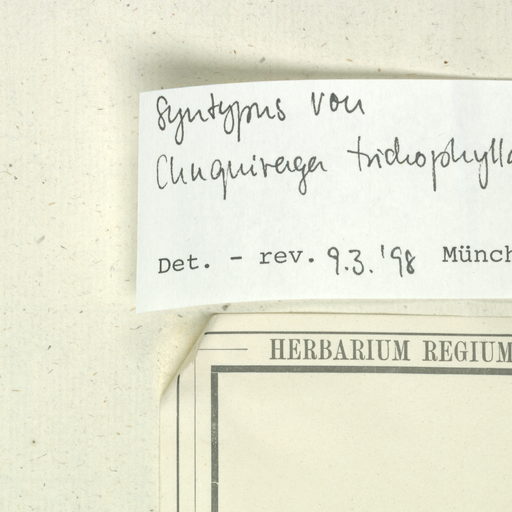 Syntypus von
Chuquiraga trichophylla
Det. - rev. 9.3.'98 Münch
HERBARIUM REGIUM